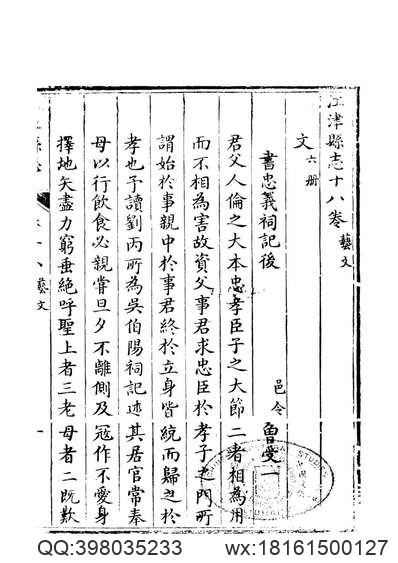 江津縣志十八卷 藝文
文 六册
書忠義祠記後
邑令 曾受一
君父人倫之大本忠孝臣子之大節二者相為用
而不相為害故資父事君求忠臣於孝子之門所
謂始於事親中於事君終於立身皆統而歸之於
孝也予讀劉丙所為吳伯陽祠記述其居官常奉
母以行飲食必親嘗旦夕不離側及冦作不愛身
擇地矢盡力窮垂絕呼聖上者三老母者二既歎
十八 藝文 一
STUDIES
QQ:398035233 wx:18161500127